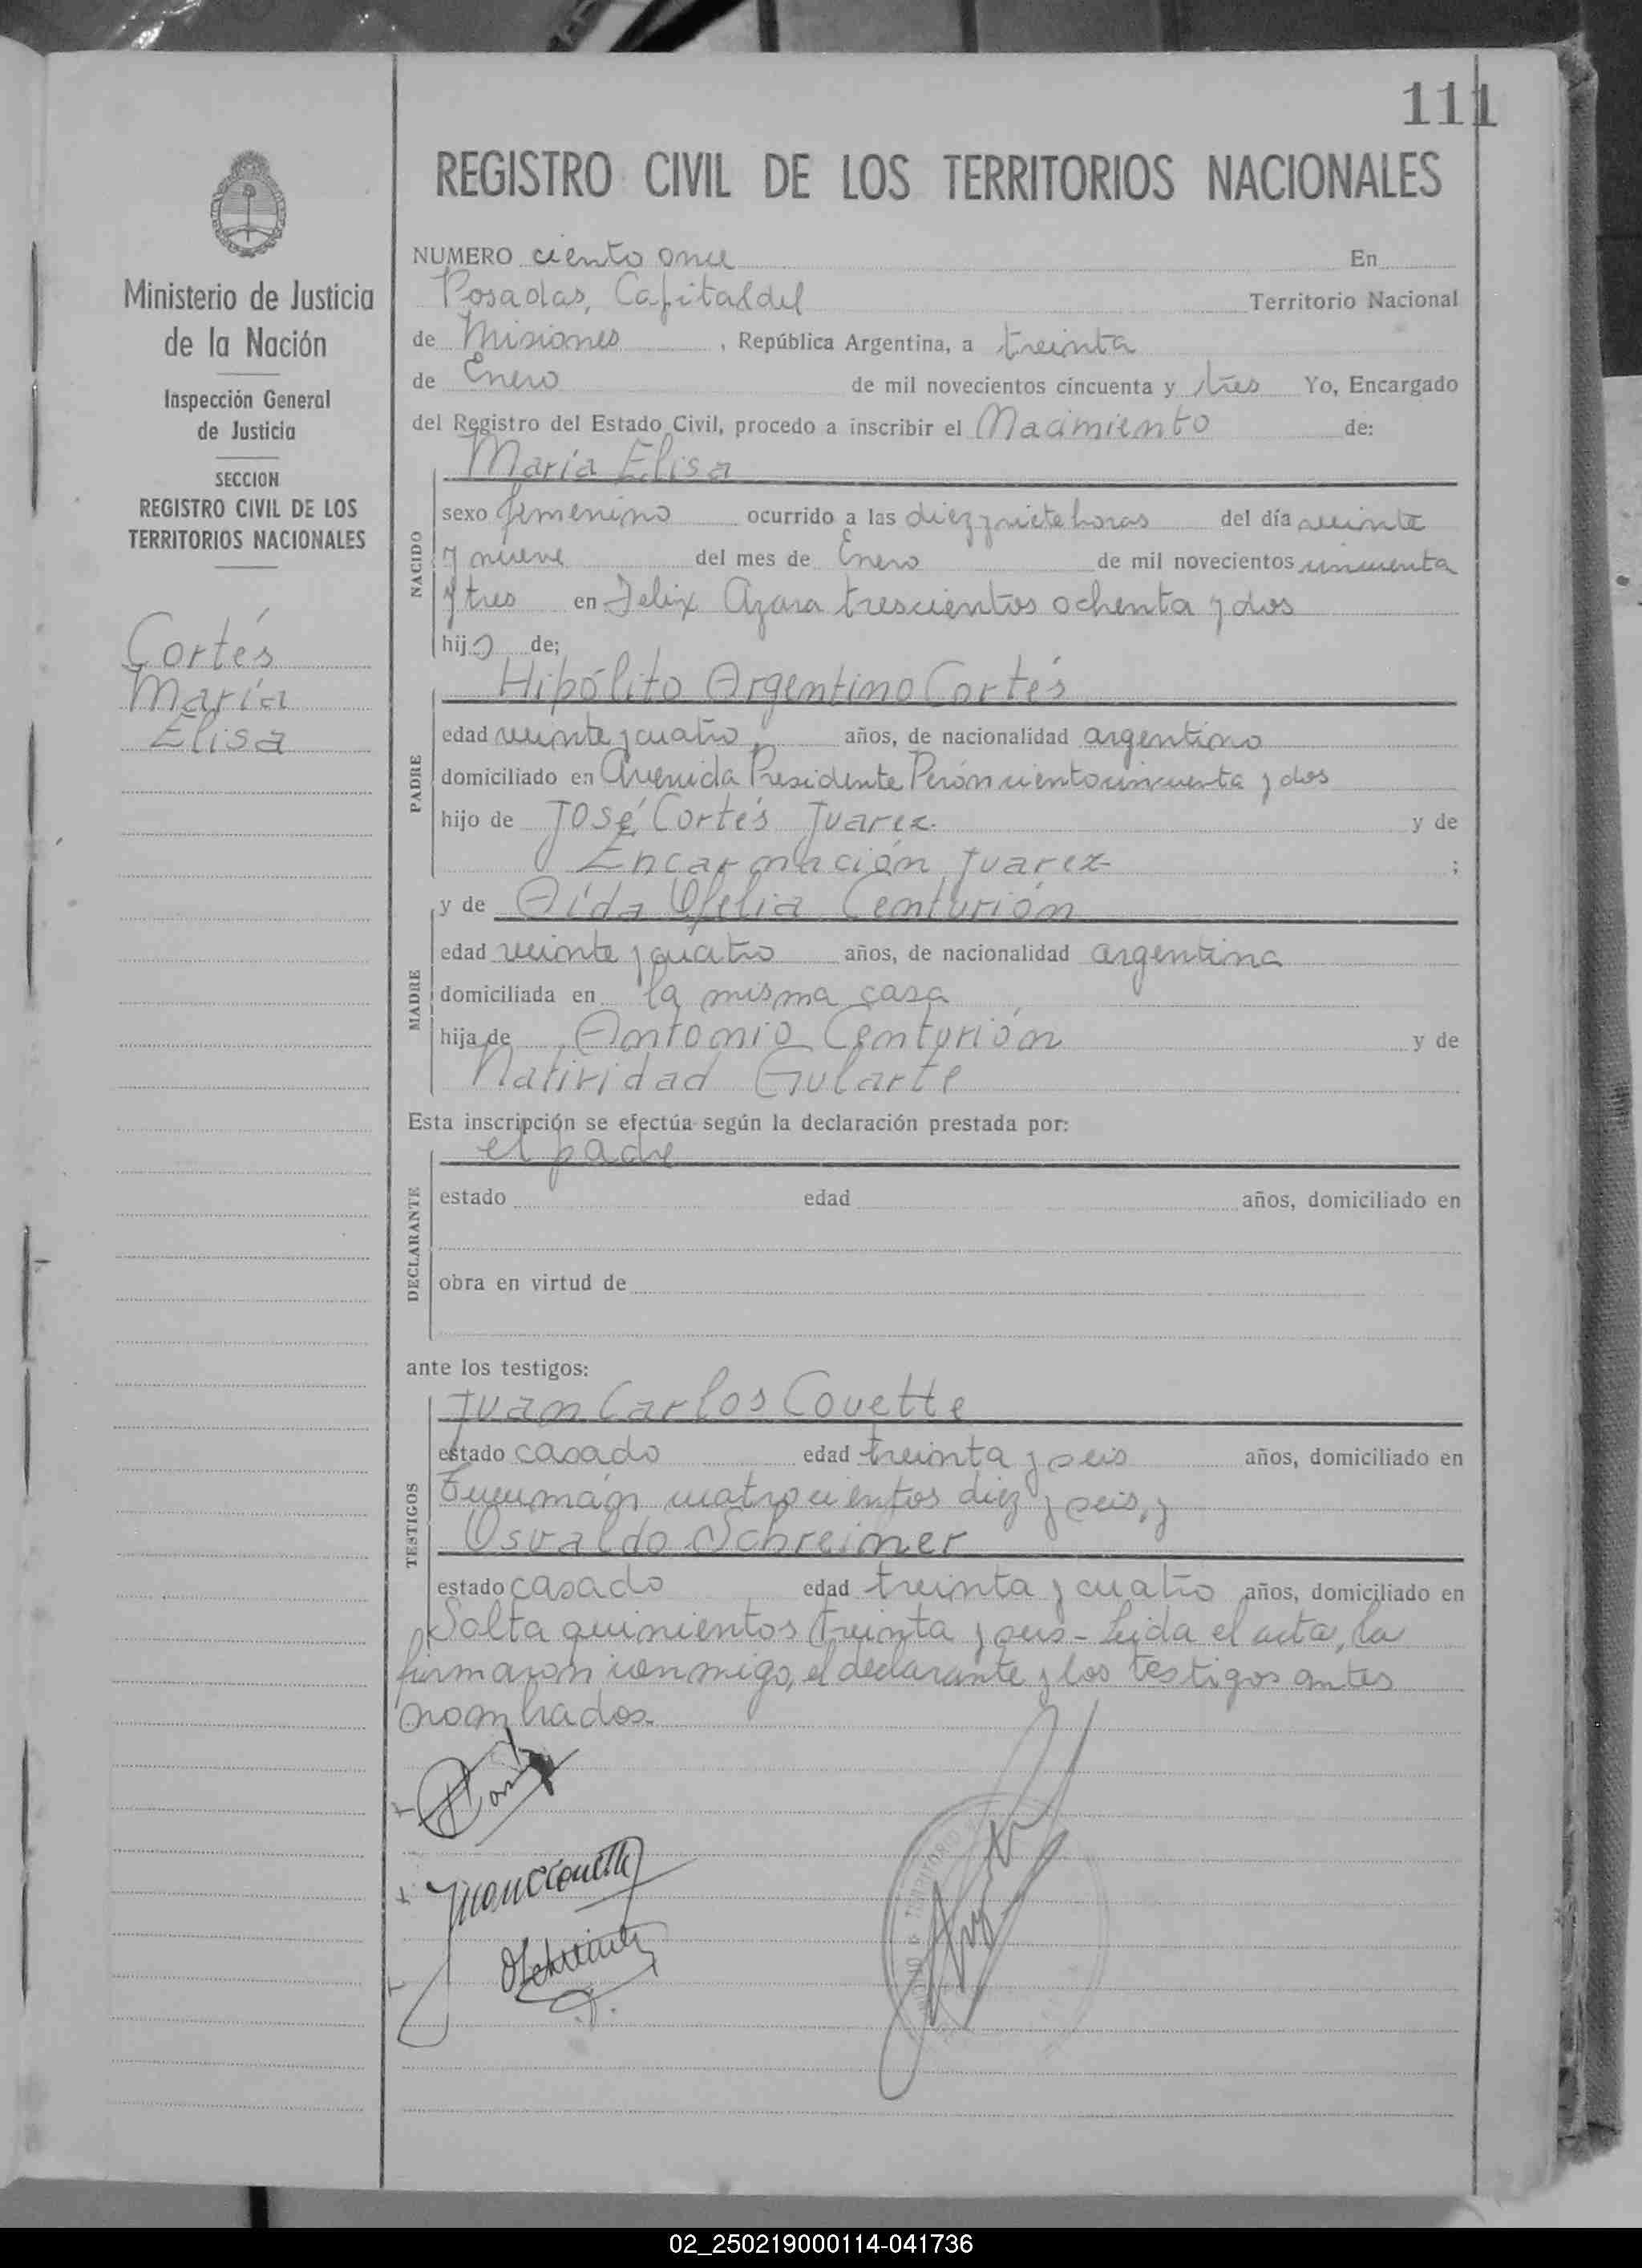 111
REGISTRO CIVIL DE LOS TERRITORIOS NACIONALES
Ministerio de Justicia
de la Nación
Inspección General
de Justicia
SECCION
REGISTRO CIVIL DE LOS
TERRITORIOS NACIONALES
Cortés
María
Elisa
NUMERO ciento once En
Posadas, Capital del Territorio Nacional
de Misiones, República Argentina, a treinta
de Enero de mil novecientos cincuenta y tres Yo, Encargado
del Registro del Estado Civil, procedo a inscribir el Nacimiento de:
NACIDO
María Elisa
sexo femenino ocurrido a las diez y siete horas del día veinte
y nueve del mes de Enero de mil novecientos cincuenta
y tres en Felix Azara trescientos ochenta y dos
hija de;
PADRE
Hipólito Argentino Cortés
edad veinte y cuatro años, de nacionalidad argentino
domiciliado en Avenida Presidente Perón ciento cincuenta y dos
hijo de José Cortés Juarez y de
Encarnación Juarez ;
MADRE
y de Aída Ofelia Centurión
edad veinte y cuatro años, de nacionalidad argentina
domiciliada en la misma casa
hija de Antonio Centurión y de
Natividad Gularte
Esta inscripción se efectúa según la declaración prestada por:
DECLARANTE
el padre
estado edad años, domiciliado en
obra en virtud de
ante los testigos:
TESTIGOS
Juan Carlos Couette
estado casado edad treinta y seis años, domiciliado en
Tucumán cuatrocientos diez y seis, y
Osvaldo Schreiner
estado casado edad treinta y cuatro años, domiciliado en
Salta quinientos treinta y seis - Leida el acta, la
firmaron conmigo, el declarante y los testigos antes
nombrados.
Juan C Couette
OSchreiner
TERRITORIO
02_250219000114-041736